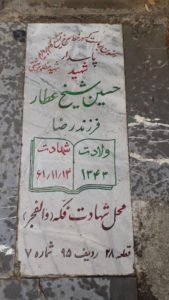 پاسدار
شهید
حسین شیخ عطار
فرزند رضا
ولادت شهادت
۱۳۴۳ ۶۱/۱۱/۱۳
محل شهادت فکه (والفجر)
قطعه ۲۸ ردیف ۹۵ شماره ۷